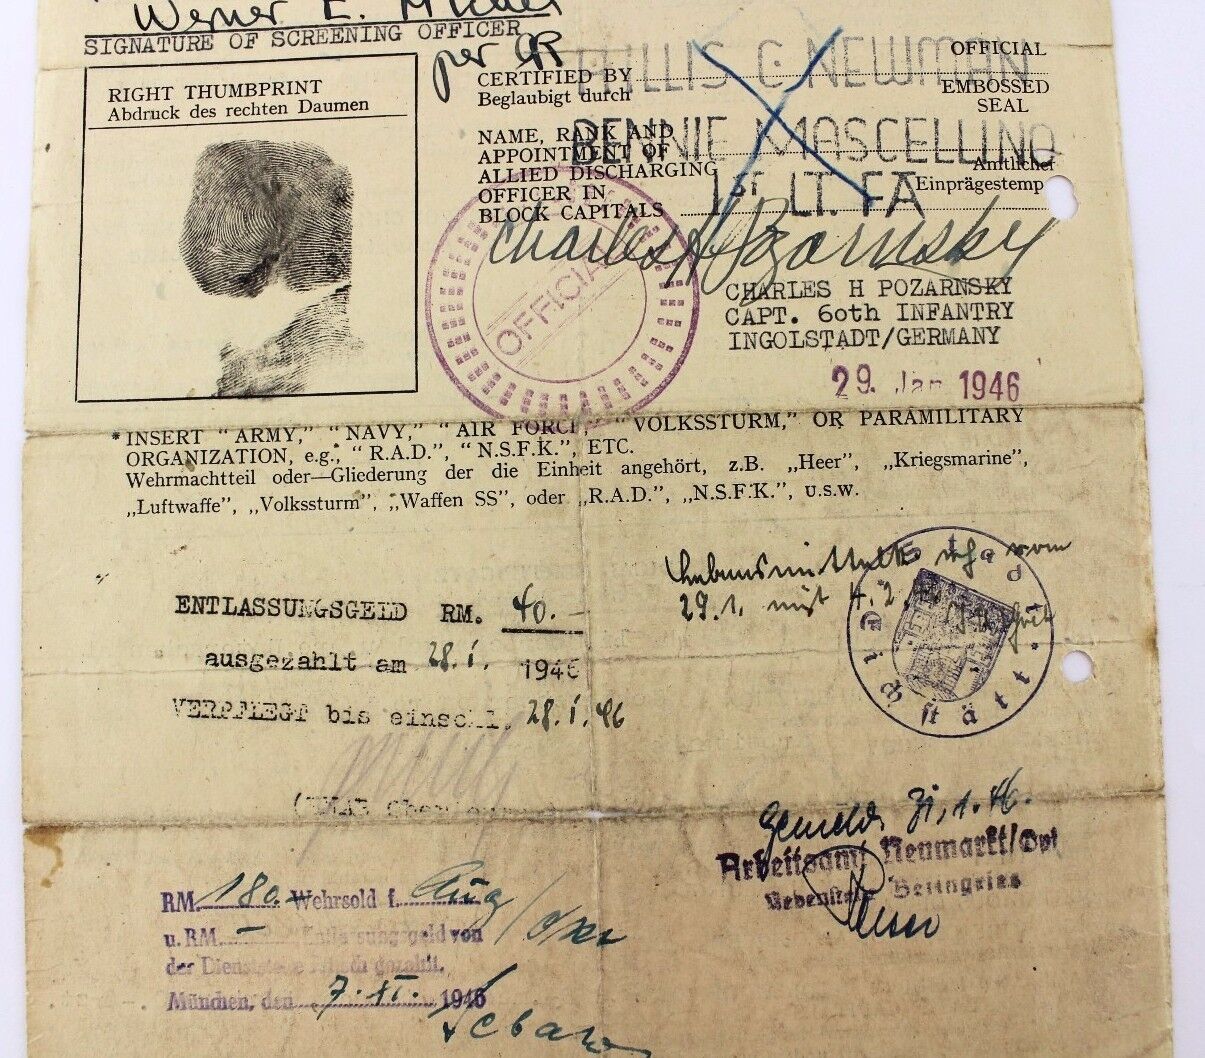 Werner E. Michel
SIGNATURE OF SCREENING OFFICER
per
RIGHT THUMBPRINT
Abdruck des rechten Daumen
CERTIFIED BY
Beglaubigt durch
PHILLIS C NEWMAN
OFFICIAL
EMBOSSED
SEAL
NAME, RANK AND
APPOINTMENT OF
ALLIED DISCHARGING
OFFICER IN
BLOCK CAPITALS
BENNIE MASCELLINO
1ST LT. FA
Amtlicher
Einprägestemp
OFFICIAL
Charles H Pozarnsky
CHARLES H POZARNSKY
CAPT. 60th INFANTRY
INGOLSTADT/GERMANY
29. Jan 1946
*INSERT “ARMY,” “NAVY,” “AIR FORCE,” “VOLKSSTURM,” OR PARAMILITARY
ORGANIZATION, e.g., “R.A.D.”, “N.S.F.K.”, ETC.
Wehrmachtteil oder—Gliederung der die Einheit angehört, z.B. „Heer”, „Kriegsmarine”,
„Luftwaffe”, „Volkssturm”, „Waffen SS”, oder „R.A.D.”, „N.S.F.K.”, u.s.w.
vom
29.1.
Stadt Eichstätt
ENTLASSUNGSGELD RM. 40.-
ausgezahlt am 28.1. 1946
VERPFLEGT bis einschl. 28.1.46
Gemeldet 31.1.46.
Arbeitsamt Neumarkt/Opf
Nebenstelle Beilngries
RM. 180.- Wehrsold f. Aug/
u. RM. - Entlassungsgeld von
der Dienststelle gezahlt.
München, den 7. XI. 1946